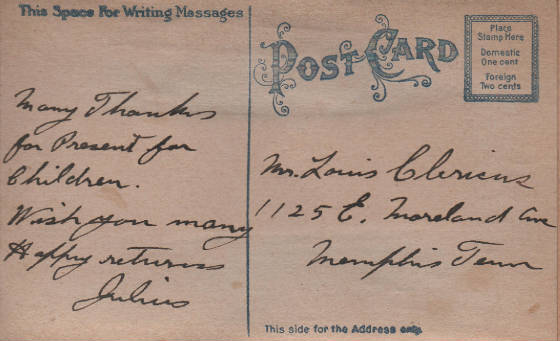 This Space For Writing Messages
POST CARD
Place
Stamp Here
Domestic
One cent
Foreign
Two cents
Many Thanks
for Present for
Children.
Wish you many
Happy returns
Julius
Mr. Louis Clericus
1125 E. Moreland Ave
Memphis Tenn
This side for the Address only.